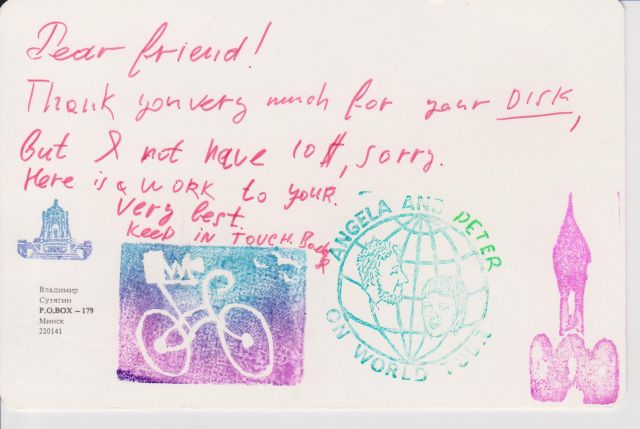 Dear friend!
Thank you very much for your DISK,
but I not have 10$, sorry.
Here is a WORK to YOUR.
Very best.
KEEP IN TOUCH.
ANGELA AND PETER
ON WORLD TOUR
Владимир
Сутягин
P.O.BOX – 179
Минск
220141